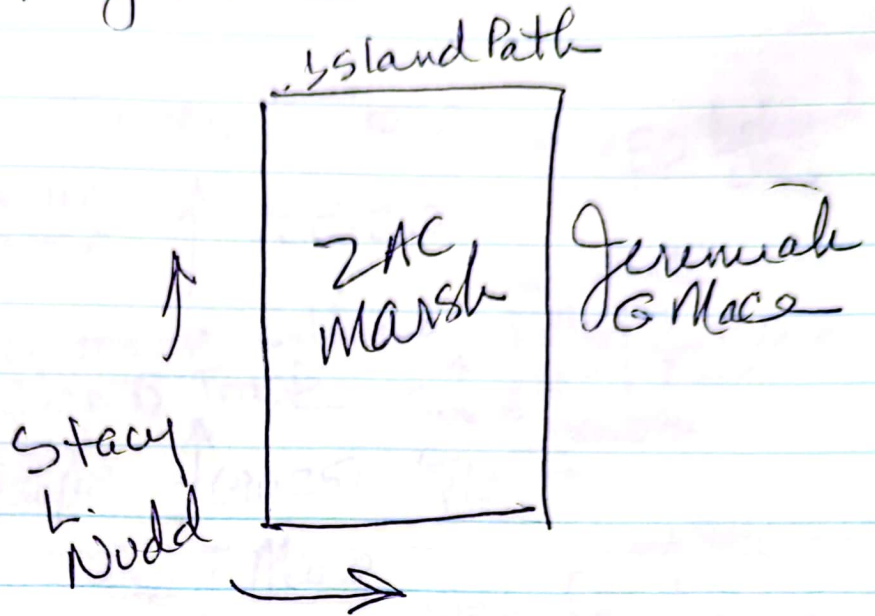 Island Path
2 AC
Marsh
Jeremiah
G Mace
Stacy
L.
Nudd